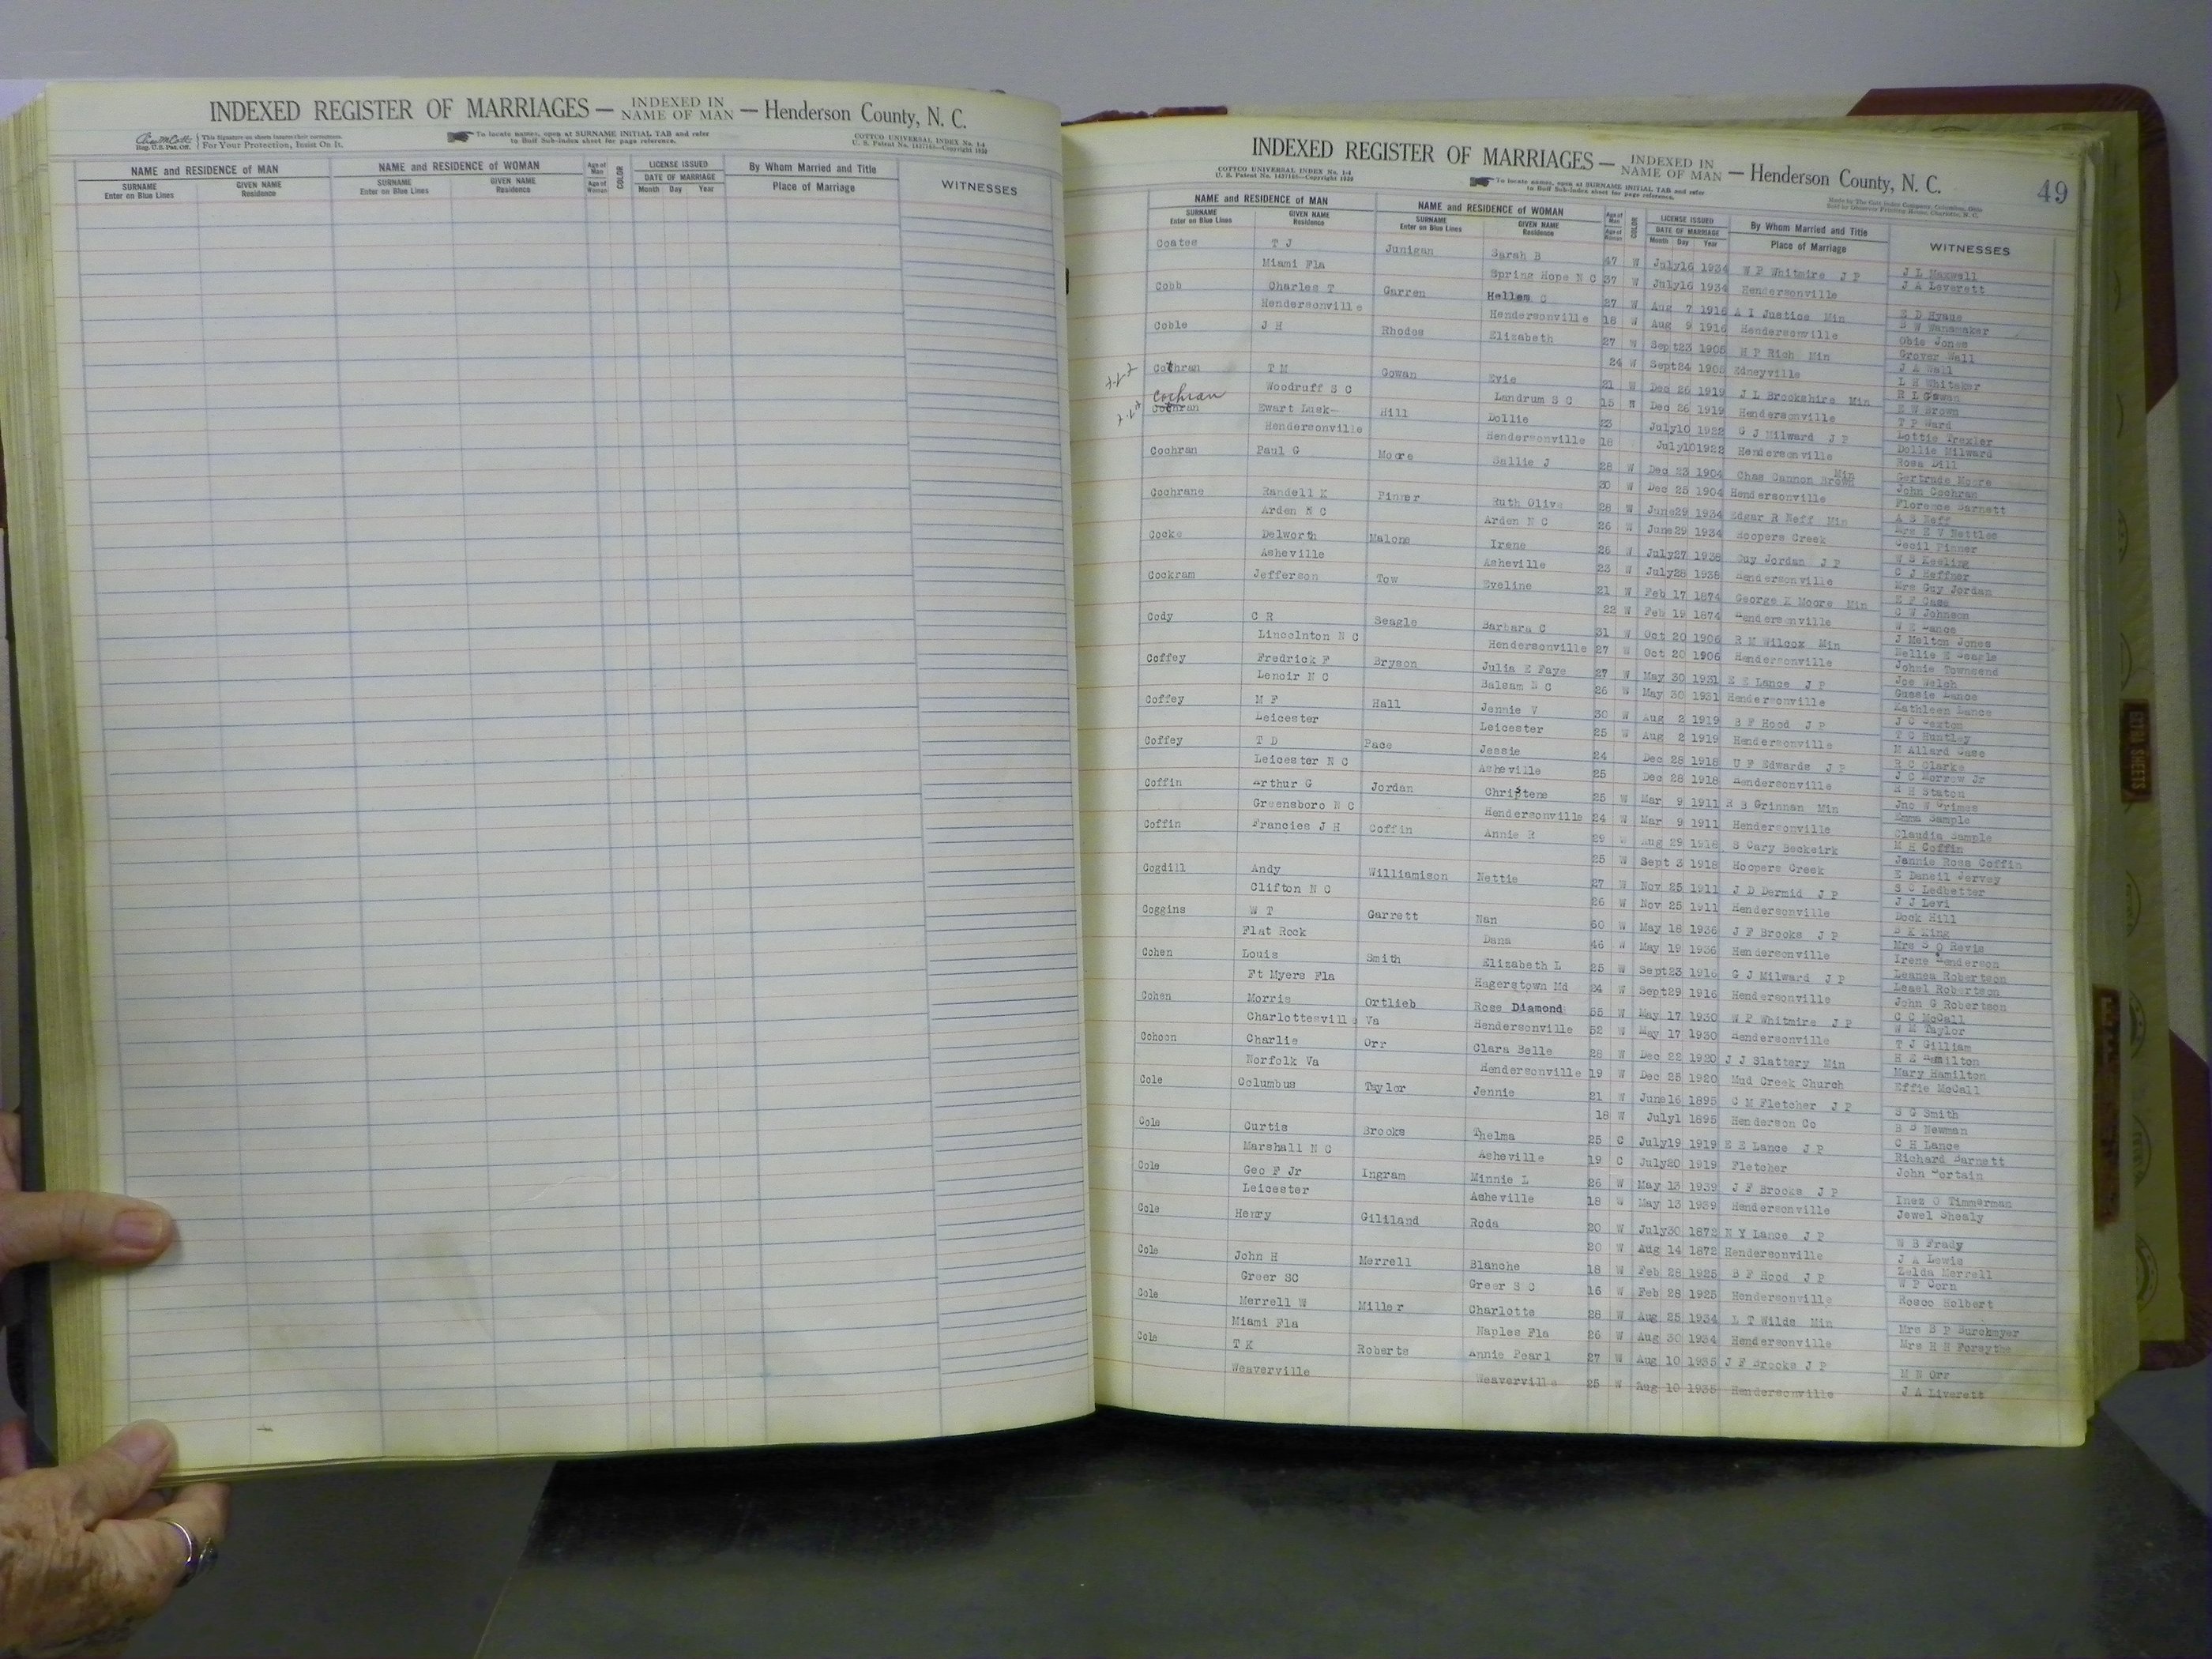 INDEXED REGISTER OF MARRIAGES — INDEXED IN NAME OF MAN — Henderson County, N. C.
Reg. U.S. Pat. Off. This Signature on sheets insures their correctness. For Your Protection, Insist On It.
To locate names, open at SURNAME INITIAL TAB and refer to Buff Sub-Index sheet for page reference.
COTTCO UNIVERSAL INDEX No. 1-4
NAME and RESIDENCE OF MAN NAME and RESIDENCE OF WOMAN Age of Man COLOR LICENSE ISSUED By Whom Married and Title WITNESSES
SURNAME Enter on Blue Lines GIVEN NAME Residence SURNAME Enter on Blue Lines GIVEN NAME Residence Age of Woman DATE OF MARRIAGE Month Day Year Place of Marriage
INDEXED REGISTER OF MARRIAGES — INDEXED IN NAME OF MAN — Henderson County, N. C. 49
COTTCO UNIVERSAL INDEX No. 1-4
To locate names, open at SURNAME INITIAL TAB and refer to Buff Sub-Index sheet for page reference.
NAME and RESIDENCE OF MAN NAME and RESIDENCE OF WOMAN Age of Man COLOR LICENSE ISSUED By Whom Married and Title WITNESSES
SURNAME Enter on Blue Lines GIVEN NAME Residence SURNAME Enter on Blue Lines GIVEN NAME Residence Age of Woman DATE OF MARRIAGE Month Day Year Place of Marriage
Coates T J Junigan Sarah B 47 W July16 1934 W P Whitmire J P J L Maxwell
Miami Fla Spring Hope N C 37 W July16 1934 Hendersonville J A Leverett
Cobb Charles T Garren Hellen C 27 W Aug 7 1916 A I Justice Min
Hendersonville Hendersonville 18 W Aug 9 1916 Hendersonville B W Wanamaker
Coble J H Rhodes Elizabeth 27 W Sept23 1905 H P Rich Min Obie Jones
Grover Wall
24 W Sept24 1905 Edneyville J A Wall
Cothran T M Gowan Evie 21 W Dec 26 1919 J L Brookshire Min L H Whitaker
R L Gowan
Woodruff S C Landrum S C 15 W Dec 26 1919 Hendersonville E W Brown
Cochran
Cothran Ewart Lusk Hill Dollie 23 July10 1922 G J Milward J P T P Ward
Lottie Trexler
Hendersonville Hendersonville 18 July10 1922 Hendersonville Dollie Milward
Cochran Paul G Moore Sallie J 28 W Dec 23 1904 Chas Cannon Brown Min Rosa Dill
Gertrude Moore
30 W Dec 25 1904 Hendersonville John Cochran
Cochrane Randell K Pinner Ruth Olive 28 W June29 1934 Edgar R Neff Min Florence Barnett
A S Neff
Arden N C Arden N C 26 W June29 1934 Hoopers Creek Mrs E V Nettles
Cocke Delworth Malone Irene 26 W July27 1938 Guy Jordan J P Cecil Pinner
W S Keeling
Asheville Asheville 23 W July28 1938 Hendersonville C J Heffner
Cockram Jefferson Tow Eveline 21 W Feb 17 1874 George K Moore Min Mrs Guy Jordan
E F Case
22 W Feb 19 1874 Hendersonville C W Johnson
Cody C R Seagle Barbara C 31 W Oct 20 1906 R M Wilcox Min
J Melton Jones
Lincolnton N C Hendersonville 27 W Oct 20 1906 Hendersonville Nellie E Seagle
Coffey Fredrick F Bryson Julia E Faye 27 W May 30 1931 E E Lance J P Johnie Townsend
Joe Welch
Lenoir N C Balsam N C 26 W May 30 1931 Hendersonville Gussie Lance
Coffey M F Hall Jennie V 30 W Aug 2 1919 B F Hood J P Kathleen Lance
J C Sexton
Leicester Leicester 25 W Aug 2 1919 Hendersonville T C Huntley
Coffey T D Pace Jessie 24 Dec 28 1918 U F Edwards J P M Allard Case
R C Clarke
Leicester N C Asheville 25 Dec 28 1918 Hendersonville J C Morrow Jr
Coffin Arthur G Jordan Christene 25 W Mar 9 1911 R B Grinnan Min R H Staton
Jno W Grimes
Greensboro N C Hendersonville 24 W Mar 9 1911 Hendersonville Emma Sample
Coffin Francies J H Coffin Annie R 29 W Aug 29 1918 S Cary Beckeirk Claudia Sample
M H Coffin
25 W Sept 3 1918 Hoopers Creek Jennie Rosa Coffin
Cogdill Andy Williamison Nettie 27 W Nov 25 1911 J D Dermid J P E Daneil Jervey
S C Ledbetter
Clifton N C 26 W Nov 25 1911 Hendersonville J J Levi
Coggins W T Garrett Nan 60 W May 18 1936 J F Brooks J P Dock Hill
B K King
Flat Rock Dana 46 W May 19 1936 Hendersonville Mrs S O Revis
Cohen Louis Smith Elizabeth L 25 W Sept23 1916 G J Milward J P Irene Henderson
Leanea Robertson
Ft Myers Fla Hagerstown Md 24 W Sept29 1916 Hendersonville Leael Robertson
Cohen Morris Ortlieb Rose Diamond 55 W May 17 1930 W P Whitmire J P John G Robertson
C C McCall
Charlottesville Va Hendersonville 52 W May 17 1930 Hendersonville W M Taylor
Cohoon Charlie Orr Clara Belle 28 W Dec 22 1920 J J Slattery Min T J Gilliam
H E Hamilton
Norfolk Va Hendersonville 19 W Dec 25 1920 Mud Creek Church Mary Hamilton
Cole Columbus Taylor Jennie 21 W June16 1895 C M Fletcher J P Effie McCall
18 W July1 1895 Henderson Co S G Smith
Cole Curtis Brooks Thelma 25 C July19 1919 E E Lance J P B B Newman
C H Lance
Marshall N C Asheville 19 C July20 1919 Fletcher Richard Barnett
Cole Geo F Jr Ingram Minnie L 26 W May 13 1939 J F Brooks J P John Portain
Leicester Asheville 18 W May 13 1939 Hendersonville Inez O Timmerman
Jewel Shealy
Cole Henry Gililand Roda 20 W July30 1872 N Y Lance J P
20 W Aug 14 1872 Hendersonville W B Frady
Cole John H Merrell Blanche 18 W Feb 28 1925 B F Hood J P J A Lewis
Zelda Merrell
Greer SC Greer S C 16 W Feb 28 1925 Hendersonville W P Corn
Cole Merrell W Miller Charlotte 28 W Aug 25 1934 L T Wilds Min Rosco Holbert
Miami Fla Naples Fla 26 W Aug 30 1934 Hendersonville Mrs B P Burckmyer
Mrs H H Forsythe
Cole T K Roberts Annie Pearl 27 W Aug 10 1935 J F Brooks J P M N Orr
Weaverville Weaverville 25 W Aug 10 1935 Hendersonville J A Liverett
EXTRA SHEETS